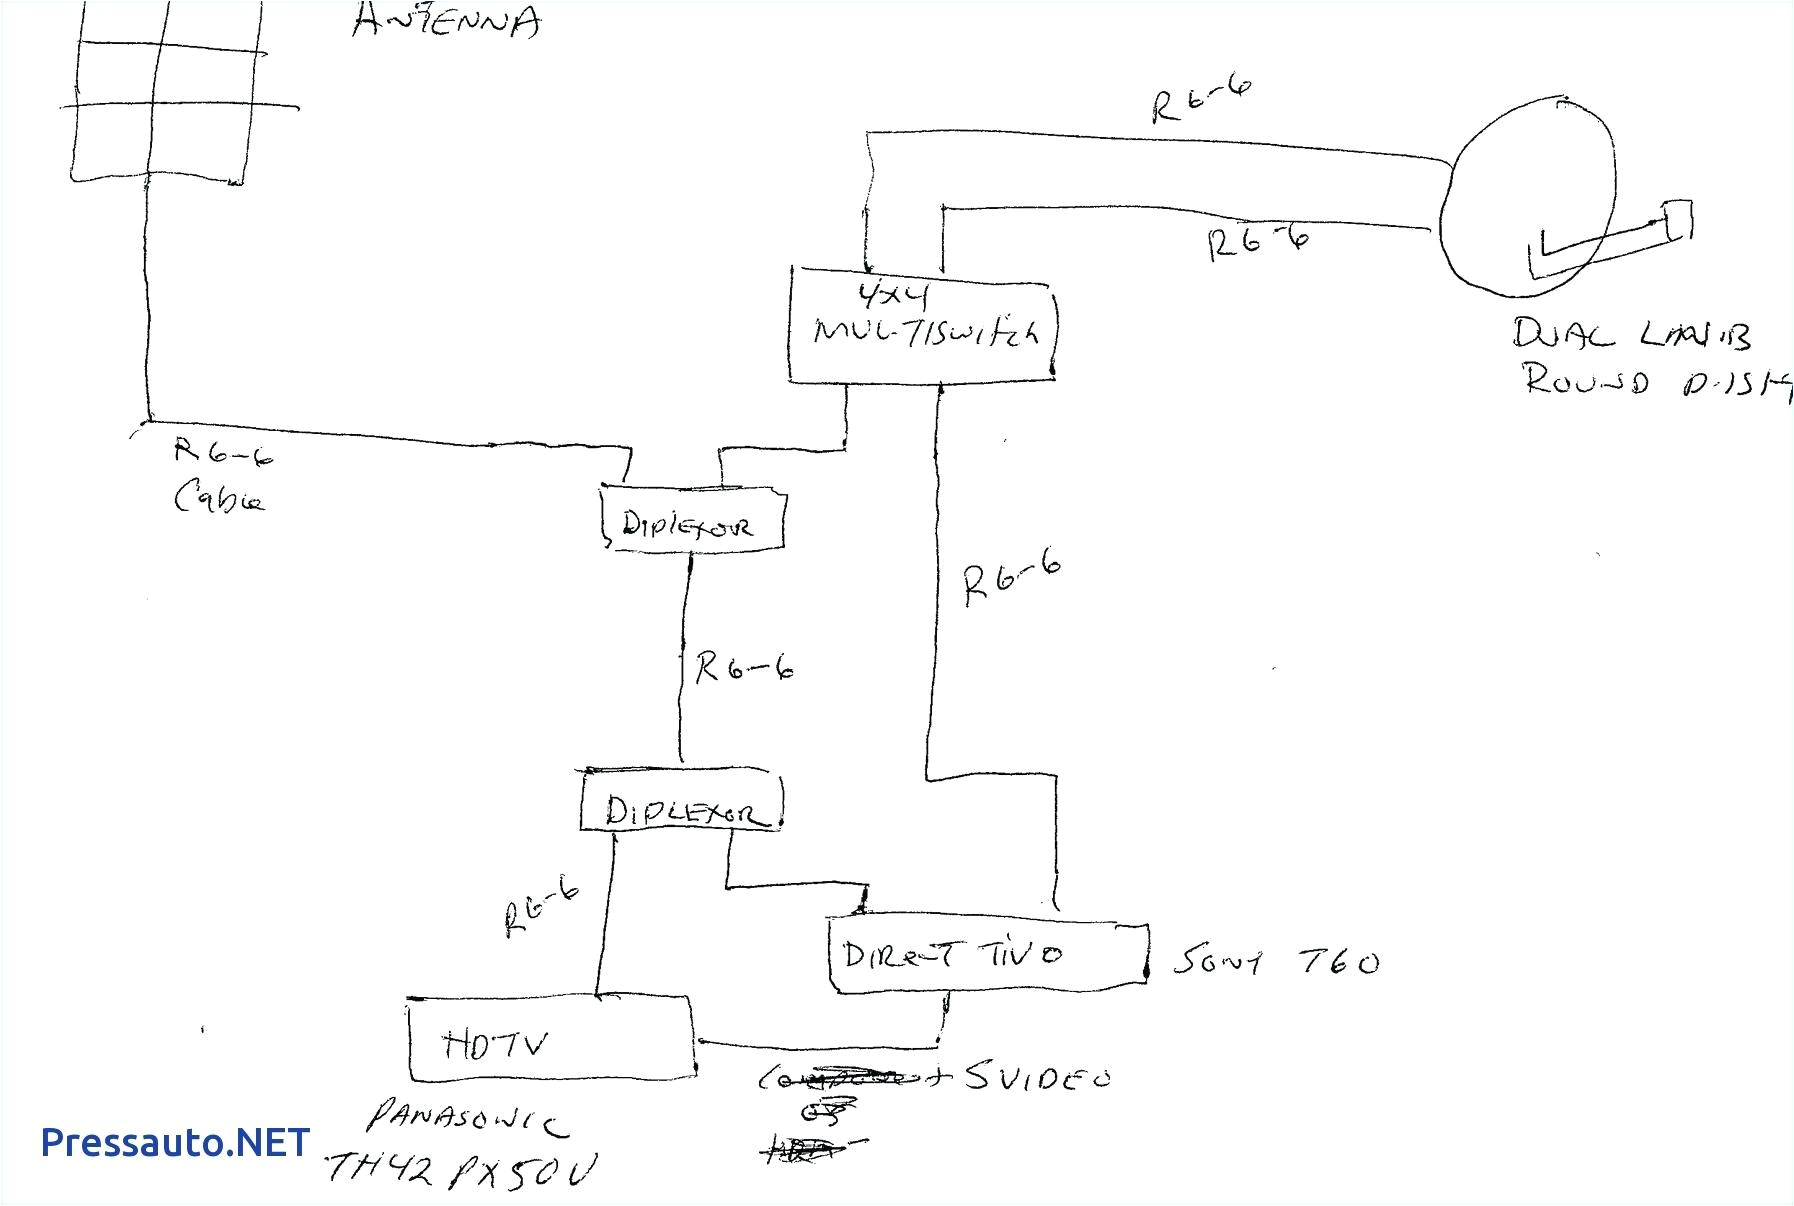 ANTENNA
RG-6
RG-6
4x4
MULTISwitch
DUAL
ROUND DISH
RG-6
Cable
DIPLEXOR
RG-6
RG-6
DIPLEXOR
RG-6
DIRECT TIVO
SONY T60
HDTV
SVIDEO
PANASONIC
TH42 PX50U
Pressauto.NET